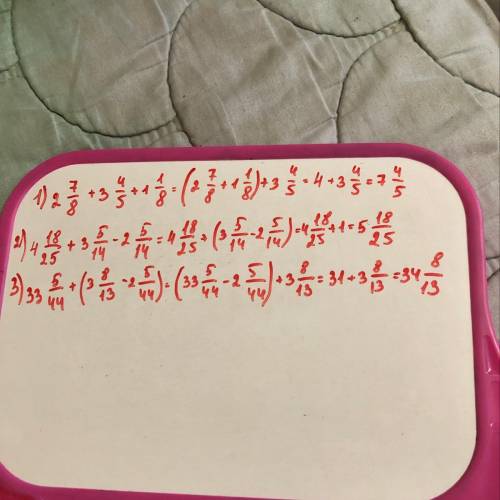 1) 2 7/8 + 3 4/5 + 1 1/8 = (2 7/8 + 1 1/8) + 3 4/5 = 4 + 3 4/5 = 7 4/5
2) 4 18/25 + 3 5/14 - 2 5/14 = 4 18/25 + (3 5/14 - 2 5/14) = 4 18/25 + 1 = 5 18/25
3) 33 5/44 + (3 8/13 - 2 5/44) = (33 5/44 - 2 5/44) + 3 8/13 = 31 + 3 8/13 = 34 8/13